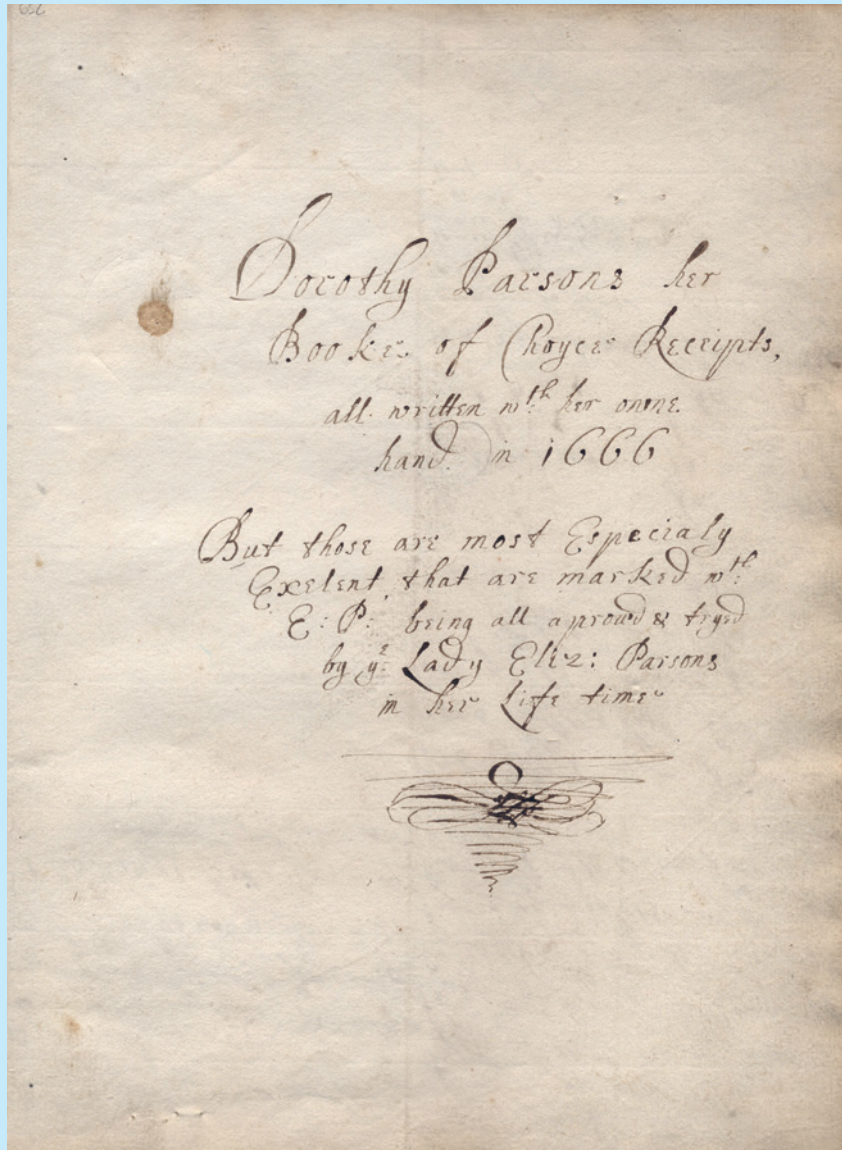 Dorothy Parsons her
Booke of Choyce Receipts,
all written wth. her owne
hand in 1666
But those are most Especialy
Exelent, that are marked wth.
E: P: being all aproud & tryed
by ye Lady Eliz: Parsons
in her Life time